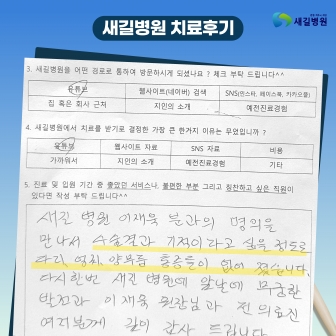 새길병원 치료후기
새길병원
3. 새길병원을 어떤 경로로 통하여 방문하시게 되셨나요 ? 체크 부탁 드립니다^^
유튜브 웹사이트(네이버) 검색 SNS(인스타, 페이스북, 카카오톡)
집 혹은 회사 근처 지인의 소개 예전진료경험
4. 새길병원에서 치료를 받기로 결정한 가장 큰 한가지 이유는 무엇입니까 ?
유튜브 웹사이트 자료 SNS 자료 비용
가까워서 지인의 소개 예전진료경험 기타
5. 진료 및 입원 기간 중 좋았던 서비스나, 불편한 부분 그리고 칭찬하고 싶은 직원이
있다면 작성 부탁 드립니다^^
새길 병원 이재욱 분과의 명의을
만나서 수술결과 기적이라고 싶을 정도로
다리, 허리, 양쪽 통증들이 없어 졌습니다.
다시한번 새길 병원에 앞날에 무궁한
발전과 이재욱 원장님과 전 의료진
여러분께 깊이 감사 드립니다